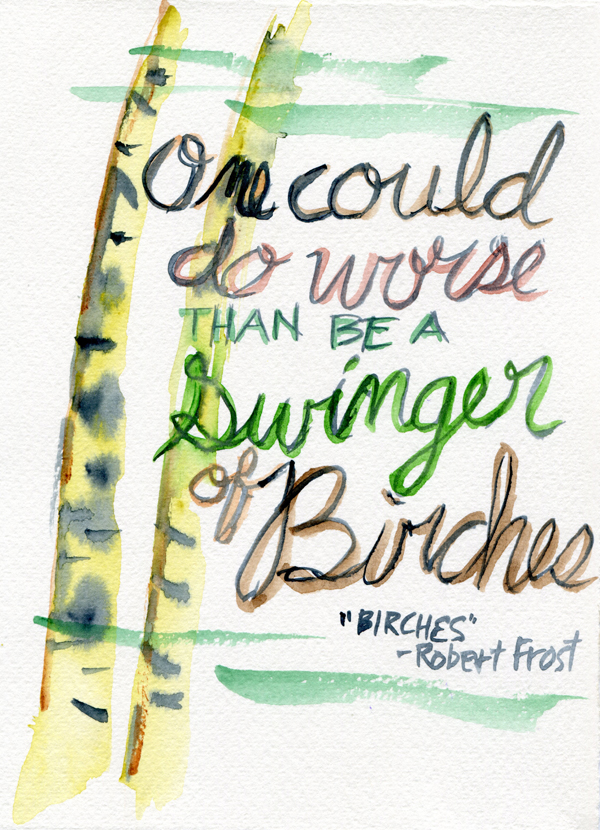 One could
do worse
THAN BE A
Swinger
of Birches
"BIRCHES"
-Robert Frost